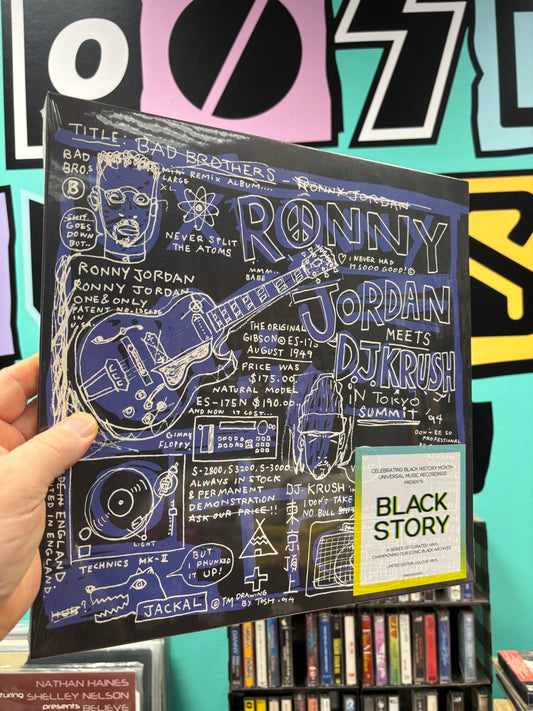 TITLE: BAD BROTHERS - RONNY JORDAN
BAD
BROS
B
MINI REMIX ALBUM....
LARGE
XL.
SHIT
GOES
DOWN
BUT..
NEVER SPLIT
THE ATOMS
RONNY
MMM..
BABE
I NEVER HAD
IT SOOO GOOD! ©
RONNY JORDAN
RONNY JORDAN
ONE & ONLY
PATENT NO.
IN
JORDAN
MEETS
D.J. KRUSH
IN TOKYO
SUMMIT '94
THE ORIGINAL
GIBSON® ES-175
AUGUST 1949
PRICE WAS
$175.00.
NATURAL MODEL
ES-175N $190.00.
AND NOW IT COST....
DON'T BE SO
PROFESSIONAL
GIMME
FLOPPY.
S-2800, S3200, S-3000
ALWAYS IN STOCK
& PERMANENT
DEMONSTRATION
ASK OUR PRICE!!
DJ. KRUSH
DON'T TAKE
NO BULL SHIT
LIGHT
TECHNICS MK-II
BUT
I PHUNKED
IT UP!
JACKAL
© TM DRAWING
BY TOSH. 94
MADE IN ENGLAND
PRINTED IN ENGLAND
CELEBRATING BLACK HISTORY MONTH
UNIVERSAL MUSIC RECORDINGS
PRESENTS
BLACK
STORY
A SERIES OF CURATED VINYL
CHAMPIONING OUR ICONIC BLACK ARCHIVES
LIMITED EDITION COLOUR VINYL
NATHAN HAINES
featuring SHELLEY NELSON
presents BELIEVE